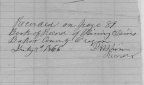 Recorded on Page 39
Book of Record of Mining Claims
Baker County Oregon
July 1866
Recorder